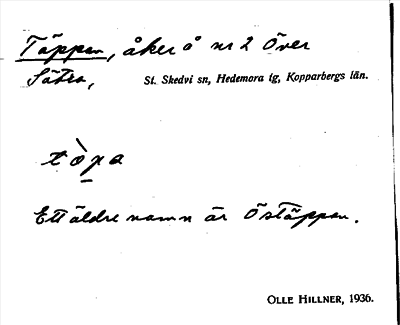 Täppan, åker å nr 2 Över
Sätra,
St. Skedvi sn, Hedemora tg, Kopparbergs län.
Ett äldre namn är Östäppan.
OLLE HILLNER, 1936.